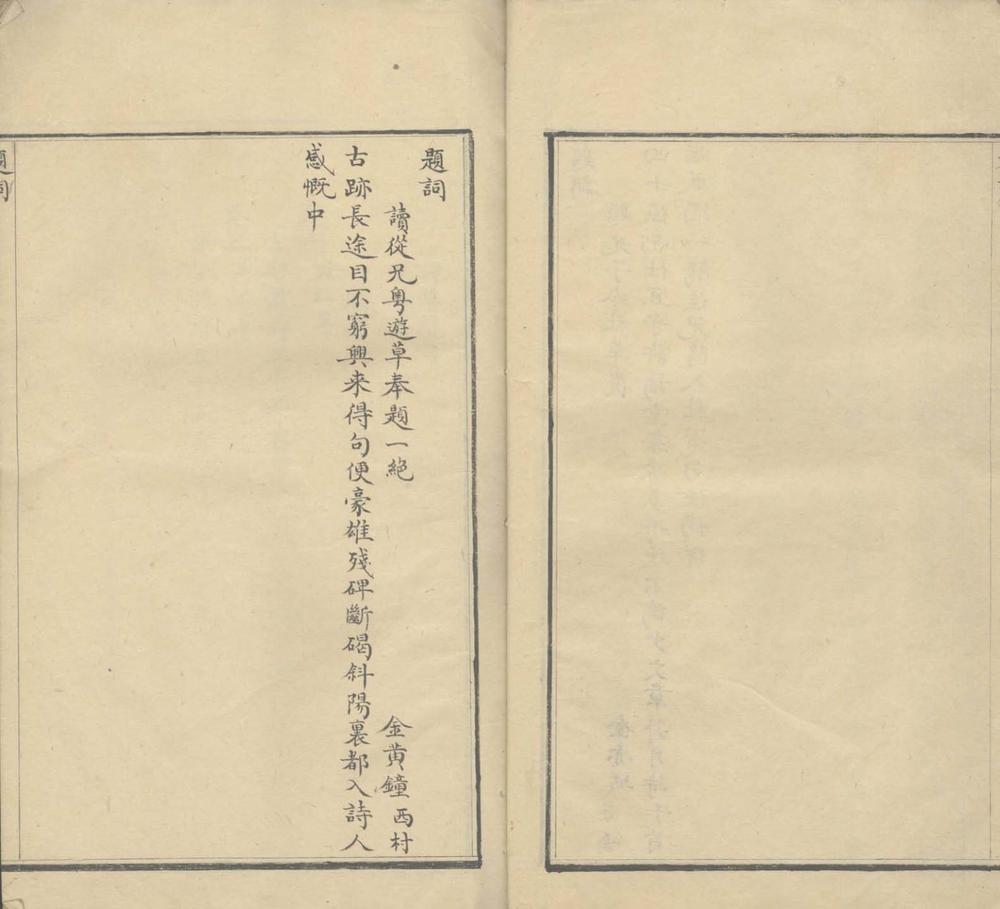 題詞
讀從兄粵遊草奉題一絕 金黄鐘西村
古跡長途目不窮興来得句便豪雄殘碑斷碣斜陽裏都入詩人
感慨中
題詞